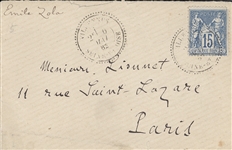 Emile Zola
15
Monsieur Lionnet
11 rue Saint-Lazare
Paris